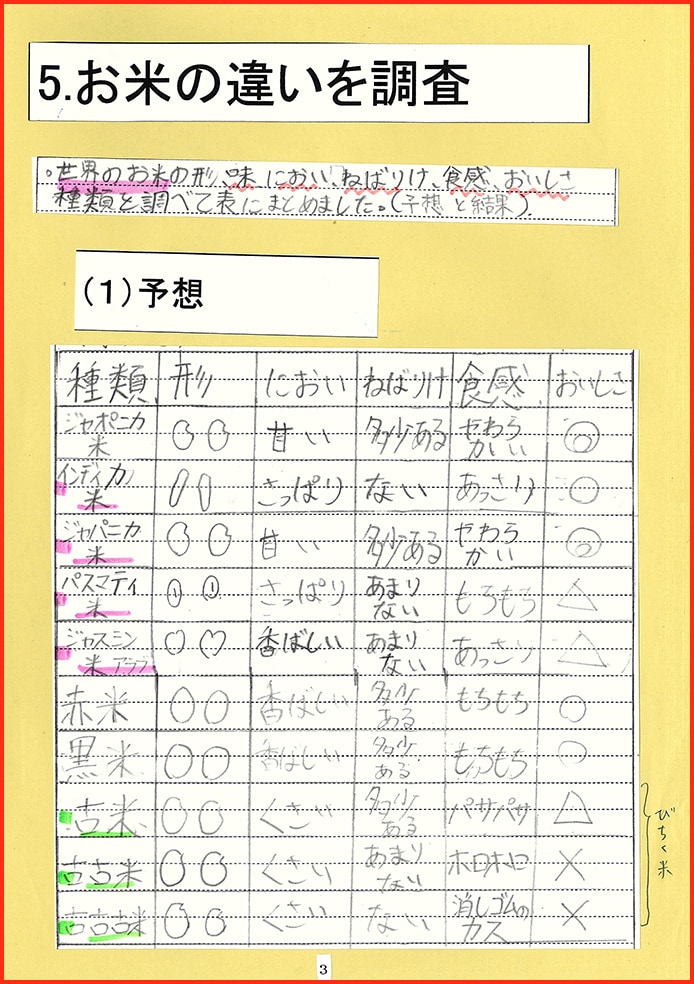 5.お米の違いを調査
。世界のお米の形、味 におい、ねばりけ、食感、おいしさ
種類と調べて表にまとめました。(予想と結果)。
(1)予想
種類 形 におい ねばりけ 食感 おいしさ
ジャポニカ米 甘い 多少ある やわらかい ◎
インディカ米 さっぱり ない あっさり ○
ジャバニカ米 甘い 多少ある やわらかい ◎
パスマティ米 さっぱり あまりない △
ジャスミン米 香ばしい あまりない あっさり △
赤米 香ばしい 多少ある もちもち ○
黒米 香ばしい 多少ある もちもち ○
古米 くさい 多少ある パサパサ △
古古米 くさい あまりない ×
古古古米 くさい ない 消しゴムのカス ×
びちく米
3